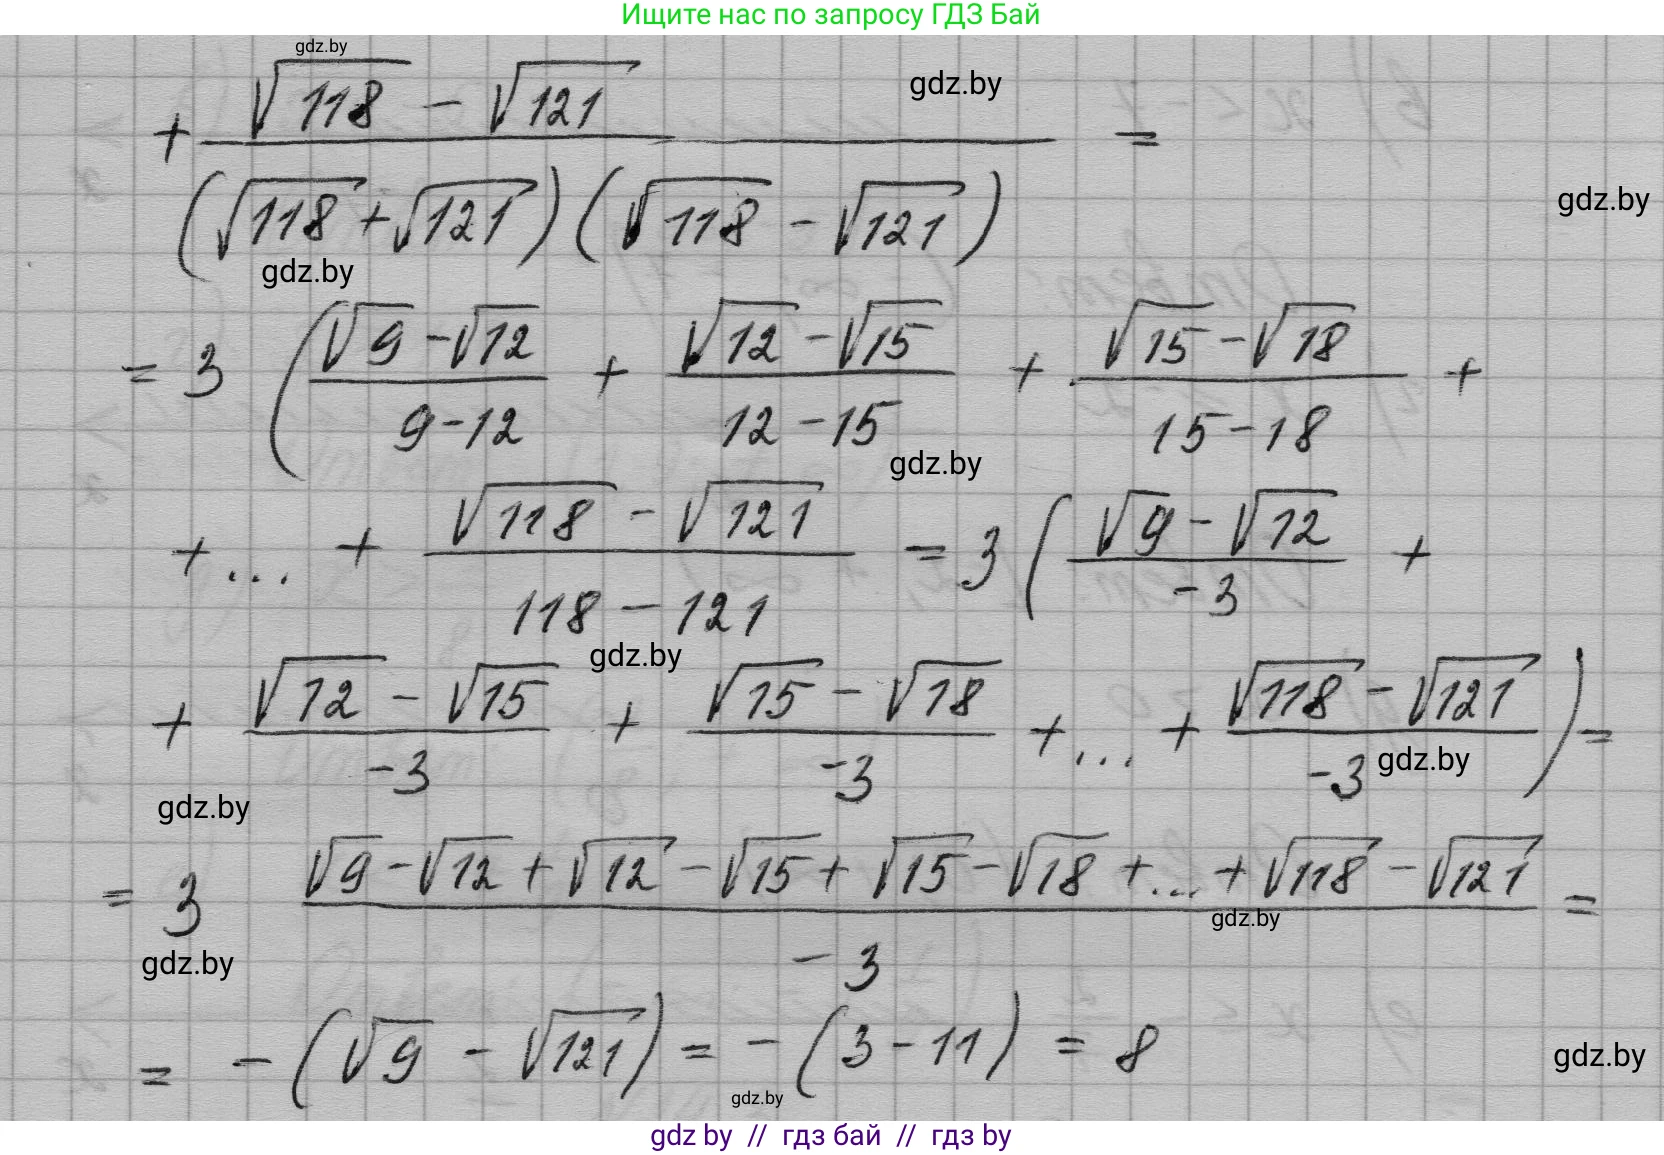 Ищите нас по запросу ГДЗ Бай
gdz.by
+ (√118 − √121) / ((√118 + √121)(√118 − √121)) =
gdz.by
gdz.by
gdz.by
= 3 ( (√9 − √12) / (9 − 12) + (√12 − √15) / (12 − 15) + (√15 − √18) / (15 − 18) +
gdz.by
+ ... + (√118 − √121) / (118 − 121) = 3 ( (√9 − √12) / −3 +
gdz.by
+ (√12 − √15) / −3 + (√15 − √18) / −3 + ... + (√118 − √121) / −3 ) =
gdz.by
gdz.by
= 3 (√9 − √12 + √12 − √15 + √15 − √18 + ... + √118 − √121) / −3 =
gdz.by
gdz.by
= − (√9 − √121) = − (3 − 11) = 8
gdz.by
gdz.by
gdz by // гдз бай // гдз by